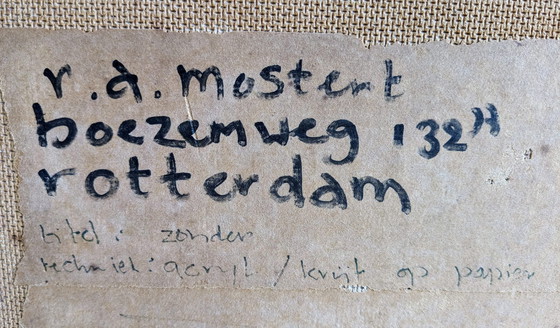 r.a. mostert
boezemweg 132H
rotterdam
titel: zonder
techniek: acryl / krijt op papier